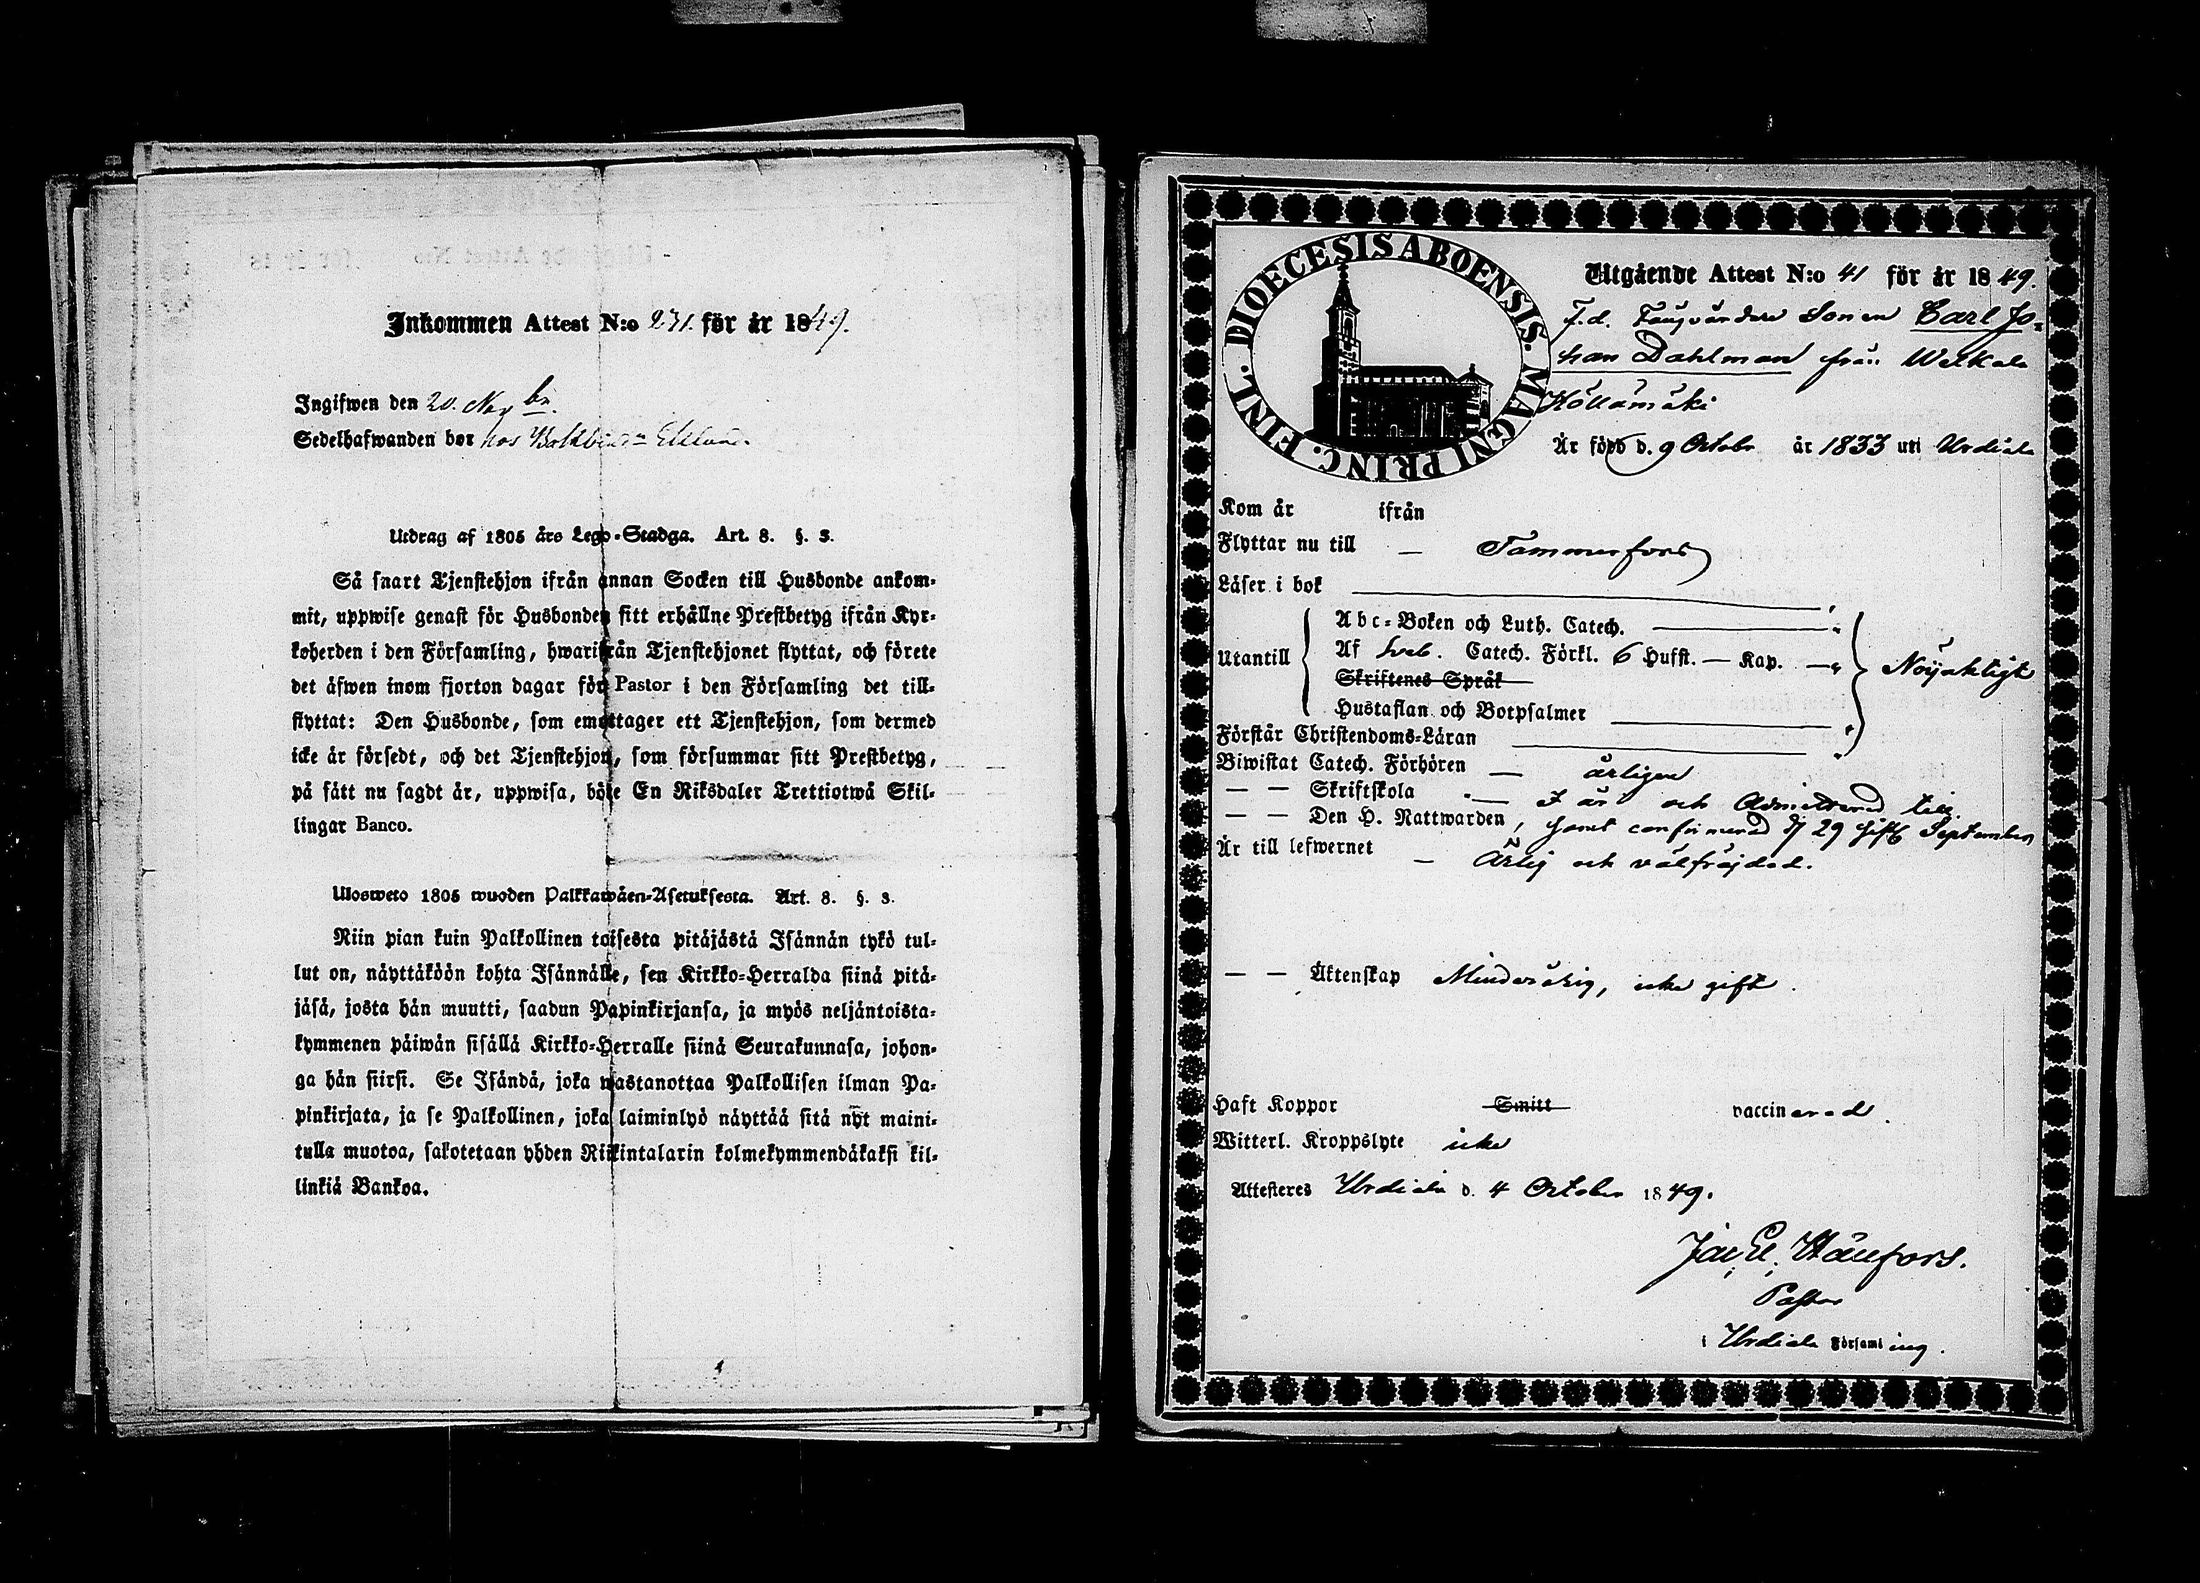 Inkommen Attest N:o 231. för år 1849.
Ingifwen den 20. Novbr.
Sedelhafwanden bor hos
Utdrag af 1805 års Lego-Stadga. Art. 8. §. 3.
Så snart Tjenstehjon ifrån annan Socken till Husbonde ankom-
mit, uppwise genast för Husbonden sitt erhållne Prestbetyg ifrån Kyr-
koherden i den Församling, hwarifrån Tjenstehjonet flyttat, och förete
det äfwen inom fjorton dagar för Pastor i den Församling det till-
flyttat: Den Husbonde, som emottager ett Tjenstehjon, som dermed
icke är försedt, och det Tjenstehjon, som försummar sitt Prestbetyg,
på sätt nu sagdt är, uppwisa, böte En Riksdaler Trettiotwå Skil-
lingar Banco.
Ulosweto 1805 wuoden Palkkawäen-Asetuksesta. Art. 8. §. 3.
Niin pian kuin Palkollinen toisesta pitäjästä Isännän tykö tul-
lut on, näyttäköön kohta Isännälle, sen Kirkko-Herralda siinä pitä-
jäsä, josta hän muutti, saadun Papinkirjansa, ja myös neljäntoista-
kymmenen päiwän sisällä Kirkko-Herralle siinä Seurakunnasa, johon-
ga hän siirsi. Se Isändä, joka wastanottaa Palkollisen ilman Pa-
pinkirjata, ja se Palkollinen, joka laiminlyö näyttää sitä nyt maini-
tulla muotoa, sakotetaan yhden Riikintalarin kolmekymmendäkaksi kil-
linkiä Bankoa.
DIOECESIS ABOENSIS. MAGNI PRINC. FINL.
Utgående Attest N:o 41 för år 1849.
F.d. Sonen Carl Jo-
han Dahlman från
Köllämäki
Är född d. 9 Octobr år 1833 uti Urdiala
Kom år ifrån
Flyttar nu till — Tammerfors
Läser i bok
Utantill
Abc-Boken och Luth. Catech.
Af Sveb. Catech. Förkl. 6 Hufst. — Kap. — Nöjaktigt
Skriftenes Språk
Hustaflan och Botpsalmer
Förstår Christendoms-Läran
Biwistat Catech. Förhören — årligen
— — Skriftskola — I år och Admitterad till
— — Den H. Nattwarden, samt confirmerad d 29 sistl. September
Är till lefwernet — Ärlig och välfräjdad.
— — Äktenskap Minderårig, icke gift.
Haft Koppor Smitt vaccinerad.
Witterl. Kroppslyte icke
Attesteres Urdiala d. 4 October 1849.
Pastor
i Urdiala Församling.